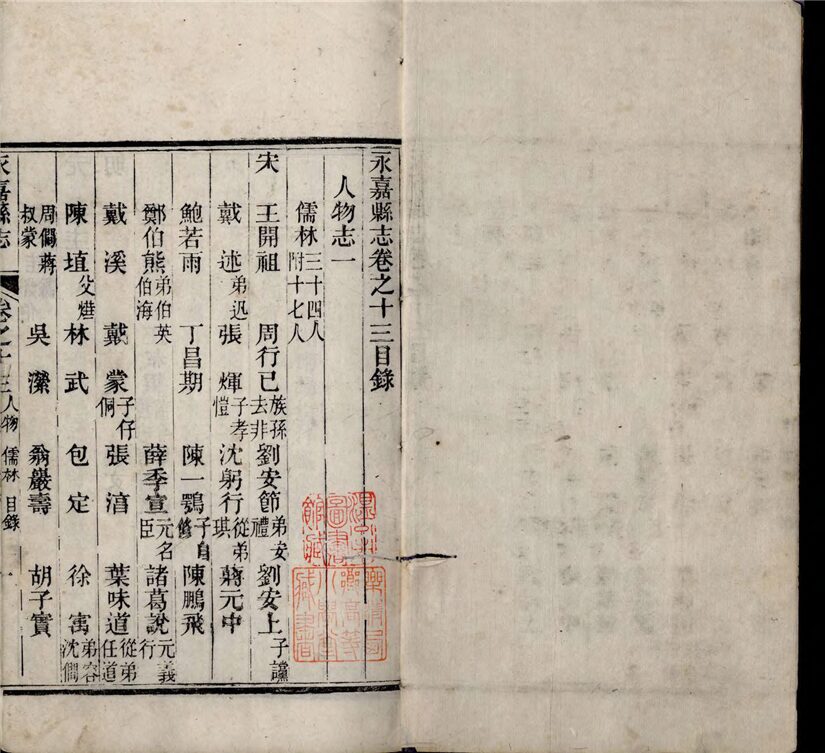 永嘉縣志卷之十三目錄
人物志一
儒林三十四人附十七人
宋 王開祖 周行己族孫去非 劉安節弟安禮 劉安上子讜
戴述弟迅 張煇子孝愷 沈躬行從弟琪 蔣元中
鮑若雨 丁昌期 陳一鶚子自修 陳鵬飛
鄭伯熊弟伯英伯海 薛季宣元名臣 諸葛說元義行
戴溪 戴蒙子仔侗 張淯 葉味道從弟任道
陳埴父燡 林武 包定 徐㝢弟容沈僩
周僩蔣叔蒙 吳瀠 翁巖壽 胡子實
永嘉縣志 卷之十三人物 儒林 目錄 一